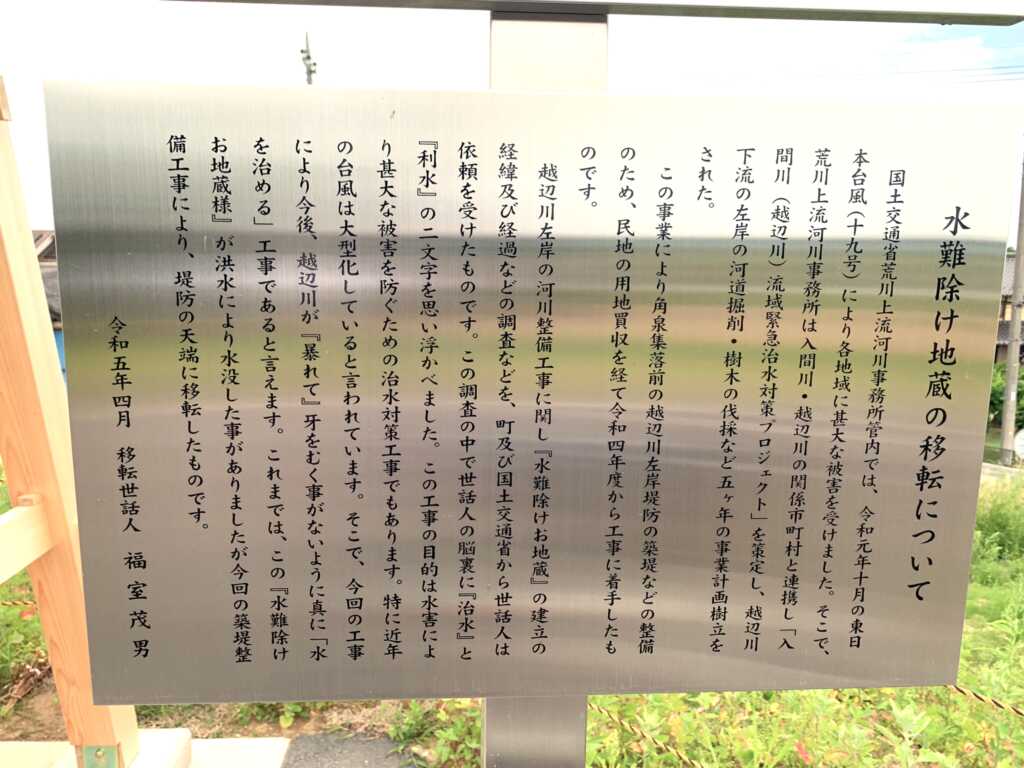 水難除け地蔵の移転について
国土交通省荒川上流河川事務所管内では、令和元年十月の東日
本台風（十九号）により各地域に甚大な被害を受けました。そこで、
荒川上流河川事務所は入間川・越辺川の関係市町村と連携し「入
間川（越辺川）流域緊急治水対策プロジェクト」を策定し、越辺川
下流の左岸の河道掘削・樹木の伐採など五ヶ年の事業計画樹立を
された。
この事業により角泉集落前の越辺川左岸堤防の築堤などの整備
のため、民地の用地買収を経て令和四年度から工事に着手したも
のです。
越辺川左岸の河川整備工事に関し『水難除けお地蔵』の建立の
経緯及び経過などの調査などを、町及び国土交通省から世話人は
依頼を受けたものです。この調査の中で世話人の脳裏に『治水』と
『利水』の二文字を思い浮かべました。この工事の目的は水害によ
り甚大な被害を防ぐための治水対策工事でもあります。特に近年
の台風は大型化していると言われています。そこで、今回の工事
により今後、越辺川が『暴れて』牙をむく事がないように真に「水
を治める」工事であると言えます。これまでは、この『水難除け
お地蔵様』が洪水により水没した事がありましたが今回の築堤整
備工事により、堤防の天端に移転したものです。
令和五年四月　移転世話人　福室茂男